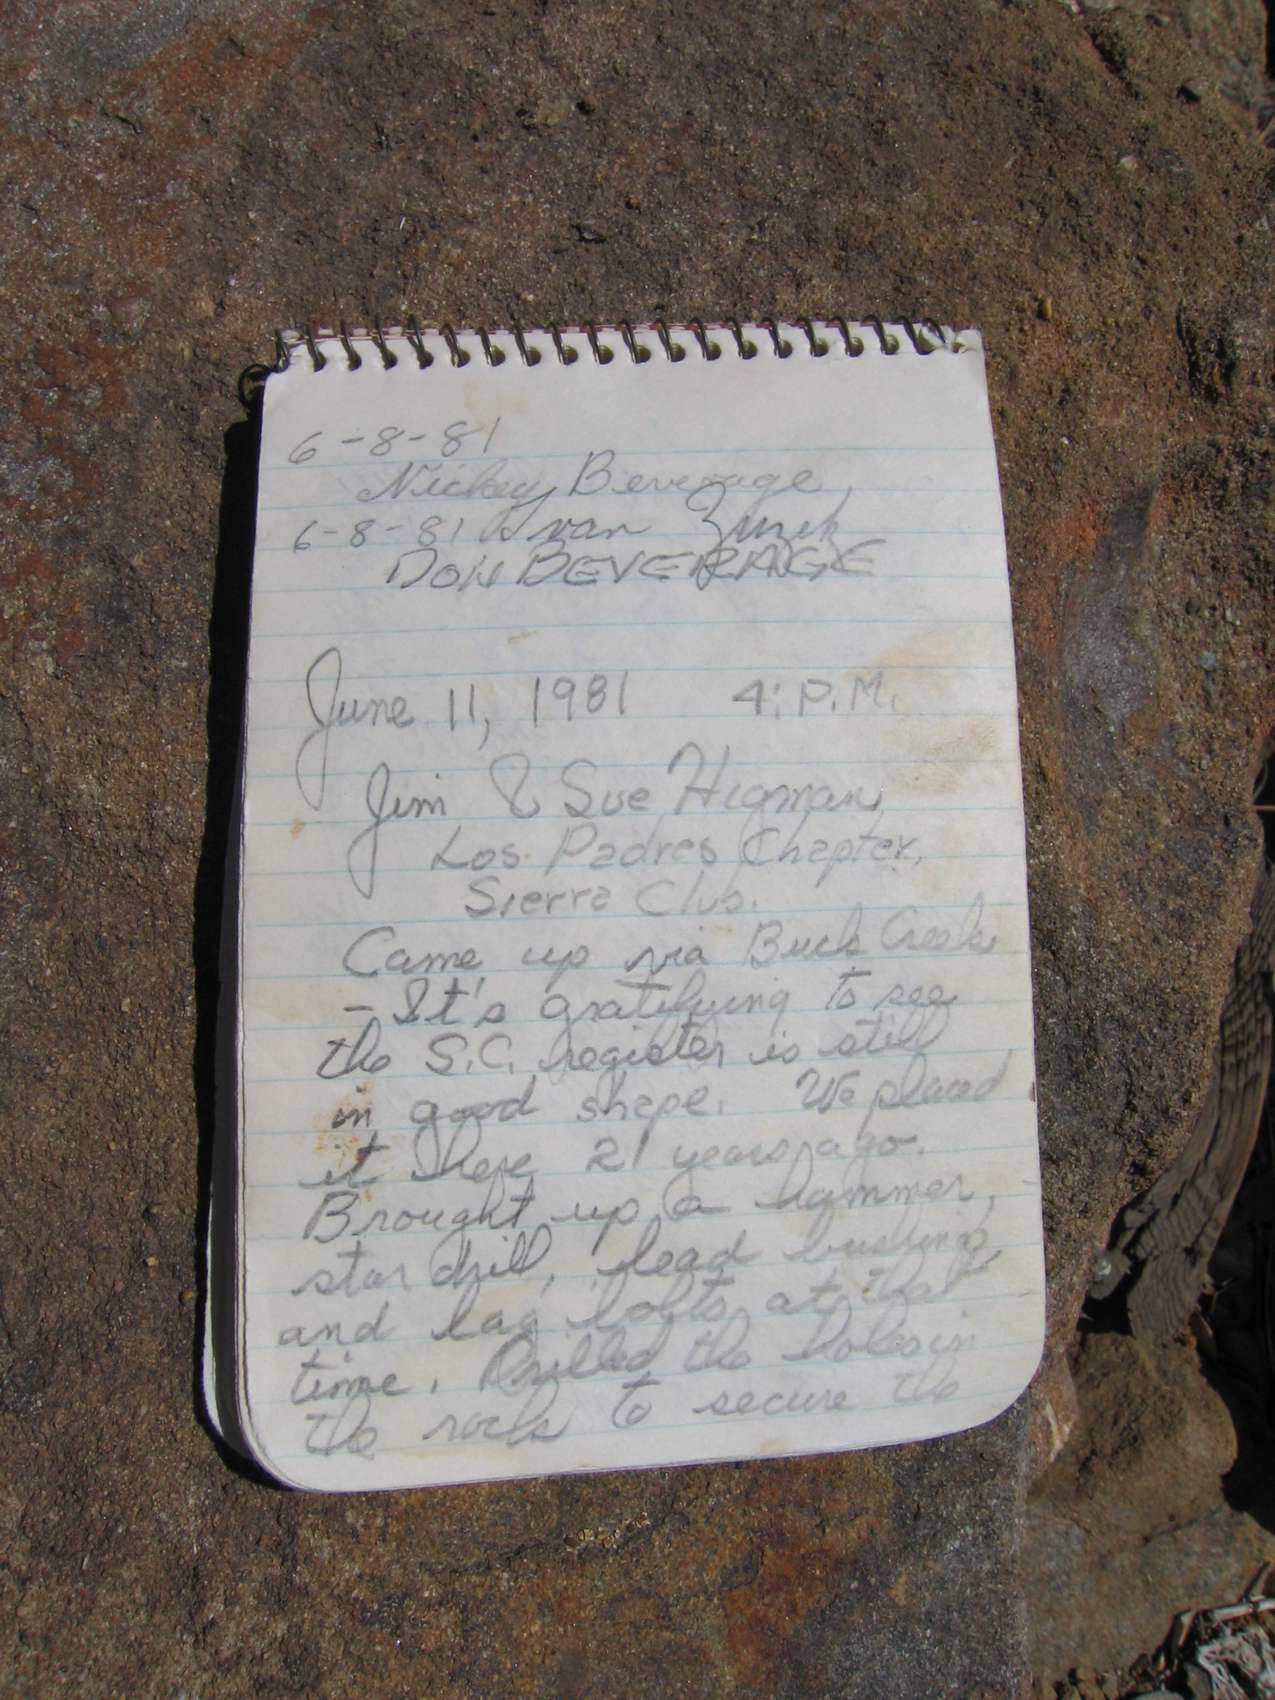 6-8-81
Nickey Beverage
6-8-81 Ivan
DON BEVERAGE
June 11, 1981 4:P.M.
Jim & Sue Higman
Los Padres Chapter,
Sierra Club.
Came up via Buck Creek
- It's gratifying to see
the S.C. register is still
in good shape. We placed
it here 21 years ago.
Brought up a hammer,
star drill, lead bushings
and lag bolts at that
time. Drilled the holes in
the rock to secure the